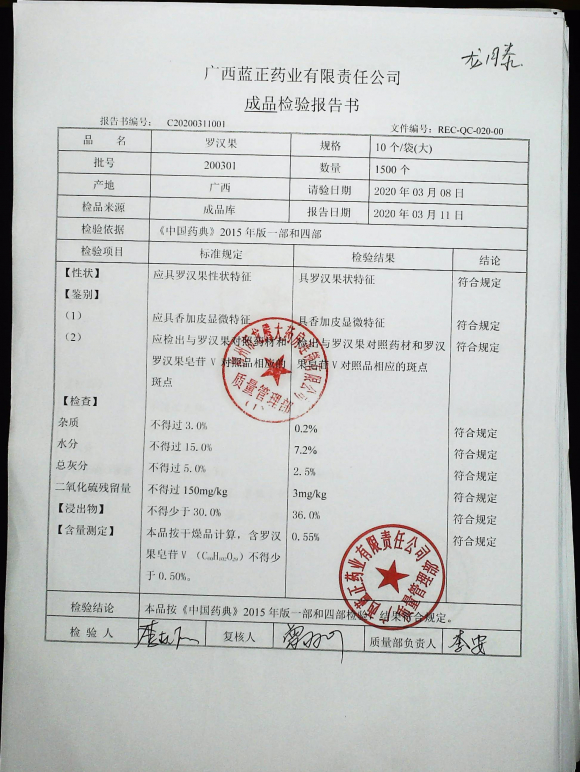 广西蓝正药业有限责任公司
成品检验报告书
报告书编号: C20200311001 文件编号: REC-QC-020-00
品 名 罗汉果 规格 10 个/袋(大)
批号 200301 数量 1500 个
产地 广西 请验日期 2020 年 03 月 08 日
检品来源 成品库 报告日期 2020 年 03 月 11 日
检验依据 《中国药典》2015 年版一部和四部
检验项目 标准规定 检验结果 结论
【性状】 应具罗汉果性状特征 具罗汉果状特征 符合规定
【鉴别】
(1) 应具香加皮显微特征 具香加皮显微特征 符合规定
(2) 应检出与罗汉果对照药材和罗 检出与罗汉果对照药材和罗汉 符合规定
汉果皂苷 V 对照品相应的 果皂苷 V 对照品相应的斑点
斑点
【检查】
杂质 不得过 3.0% 0.2% 符合规定
水分 不得过 15.0% 7.2% 符合规定
总灰分 不得过 5.0% 2.5% 符合规定
二氧化硫残留量 不得过 150mg/kg 3mg/kg 符合规定
【浸出物】 不得少于 30.0% 36.0% 符合规定
【含量测定】 本品按干燥品计算，含罗汉 0.55% 符合规定
果皂苷 V （C₆₀H₁₀₂O₂₉）不得少
于 0.50%。
检验结论 本品按《中国药典》2015 年版一部和四部检验，结果符合规定。
检 验 人 复核人 质量部负责人 李安
大药房连锁有限公司
质量管理部
(1)
广西蓝正药业有限责任公司
质量管理部